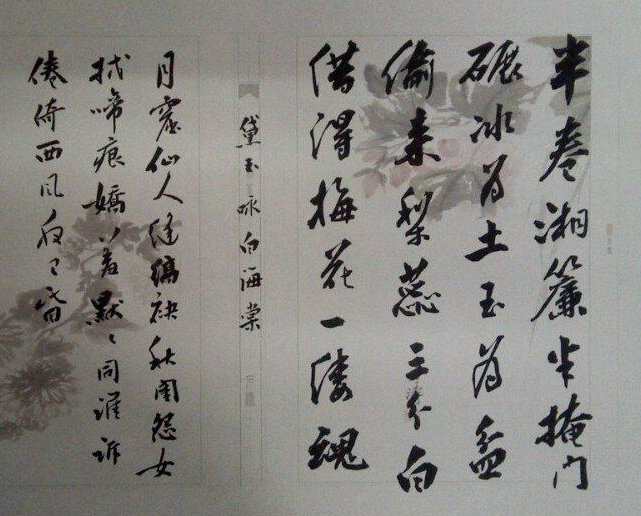 半卷湘簾半掩门
碾冰为土玉为盆
偷来梨蕊三分白
借得梅花一缕魂
黛玉咏白海棠
月窟仙人缝缟袂秋闺怨女
拭啼痕嬌羞默々同谁诉
倦倚西风夜已昏